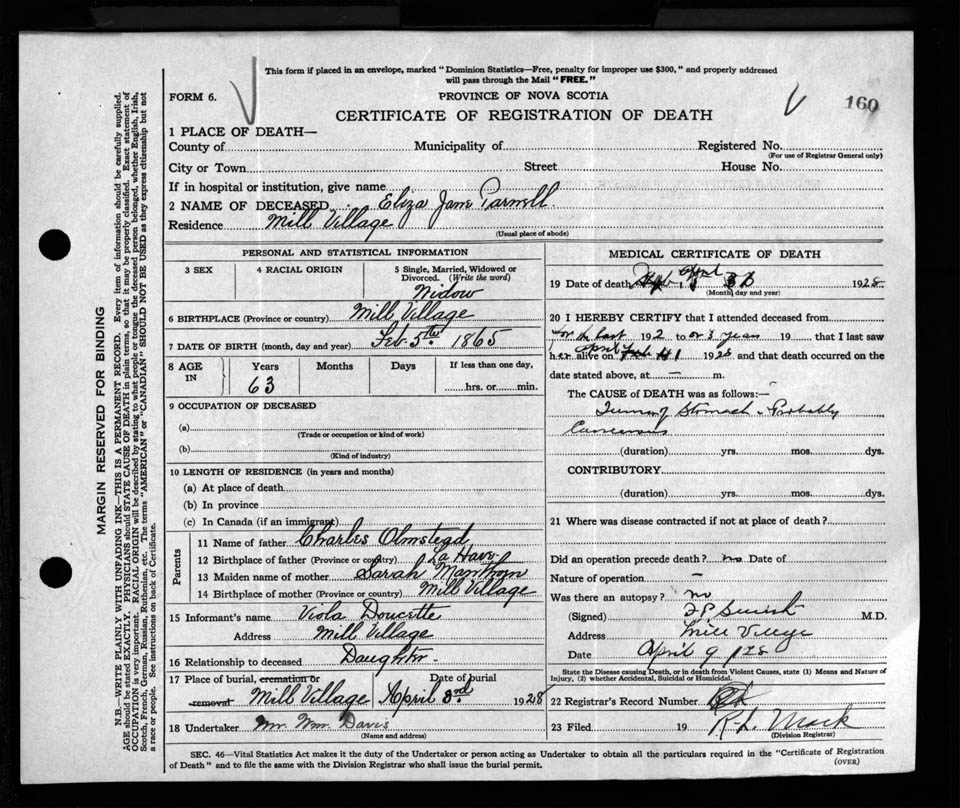 This form if placed in an envelope, marked "Dominion Statistics—Free, penalty for improper use $300," and properly addressed
will pass through the Mail "FREE."
FORM 6.
PROVINCE OF NOVA SCOTIA
160
CERTIFICATE OF REGISTRATION OF DEATH
1 PLACE OF DEATH—
County of Municipality of Registered No.
(For use of Registrar General only)
City or Town Street House No.
If in hospital or institution, give name
2 NAME OF DECEASED Eliza Jane Parnell
Residence Mill Village
(Usual place of abode)
PERSONAL AND STATISTICAL INFORMATION
3 SEX
4 RACIAL ORIGIN
5 Single, Married, Widowed or
Divorced. (Write the word)
Widow
6 BIRTHPLACE (Province or country) Mill Village
7 DATE OF BIRTH (month, day and year) Feb 5th 1865
8 AGE
IN
Years
63
Months
Days
If less than one day,
hrs. or min.
9 OCCUPATION OF DECEASED
(a)
(Trade or occupation or kind of work)
(b)
(Kind of industry)
10 LENGTH OF RESIDENCE (in years and months)
(a) At place of death
(b) In province
(c) In Canada (if an immigrant)
Parents
11 Name of father Charles Olmstead
12 Birthplace of father (Province or country) La Have
13 Maiden name of mother Sarah
14 Birthplace of mother (Province or country) Mill Village
15 Informant's name Viola Doucette
Address Mill Village
16 Relationship to deceased Daughter
17 Place of burial, cremation or
removal Mill Village
Date of burial
April 3rd 1928
18 Undertaker Mr. Wm. Davis
(Name and address)
MEDICAL CERTIFICATE OF DEATH
19 Date of death April 1928
(Month, day and year)
20 I HEREBY CERTIFY that I attended deceased from
for the last 192 to 2 or 3 years 19 that I last saw
her alive on April 1 1928 and that death occurred on the
date stated above, at — m.
The CAUSE OF DEATH was as follows:—
Tumor of Stomach. Probably
Cancerous
(duration) yrs. mos. dys.
CONTRIBUTORY
(duration) yrs. mos. dys.
21 Where was disease contracted if not at place of death?
Did an operation precede death? no Date of
Nature of operation —
Was there an autopsy? no
(Signed) M.D.
Address Mill Village
Date April 9 1928
State the Disease causing Death, or in death from Violent Causes, state (1) Means and Nature of
Injury, (2) whether Accidental, Suicidal or Homicidal.
22 Registrar's Record Number
23 Filed 19 R. L. Mack
(Division Registrar)
SEC. 46—Vital Statistics Act makes it the duty of the Undertaker or person acting as Undertaker to obtain all the particulars required in the "Certificate of Registration
of Death" and to file the same with the Division Registrar who shall issue the burial permit.
(OVER)
MARGIN RESERVED FOR BINDING
N.B.—WRITE PLAINLY WITH UNFADING INK—THIS IS A PERMANENT RECORD. Every item of information should be carefully supplied.
AGE should be stated EXACTLY. PHYSICIANS should STATE CAUSE OF DEATH in plain terms, so that it may be properly classified. Exact statement of
OCCUPATION is very important. RACIAL ORIGIN will be described by stating to what people or tongue the deceased person belonged, whether English, Irish,
Scotch, French, German, Russian, Ruthenian, etc. The terms "AMERICAN" or "CANADIAN" SHOULD NOT BE USED as they express citizenship but not
a race or people. See instructions on back of Certificate.